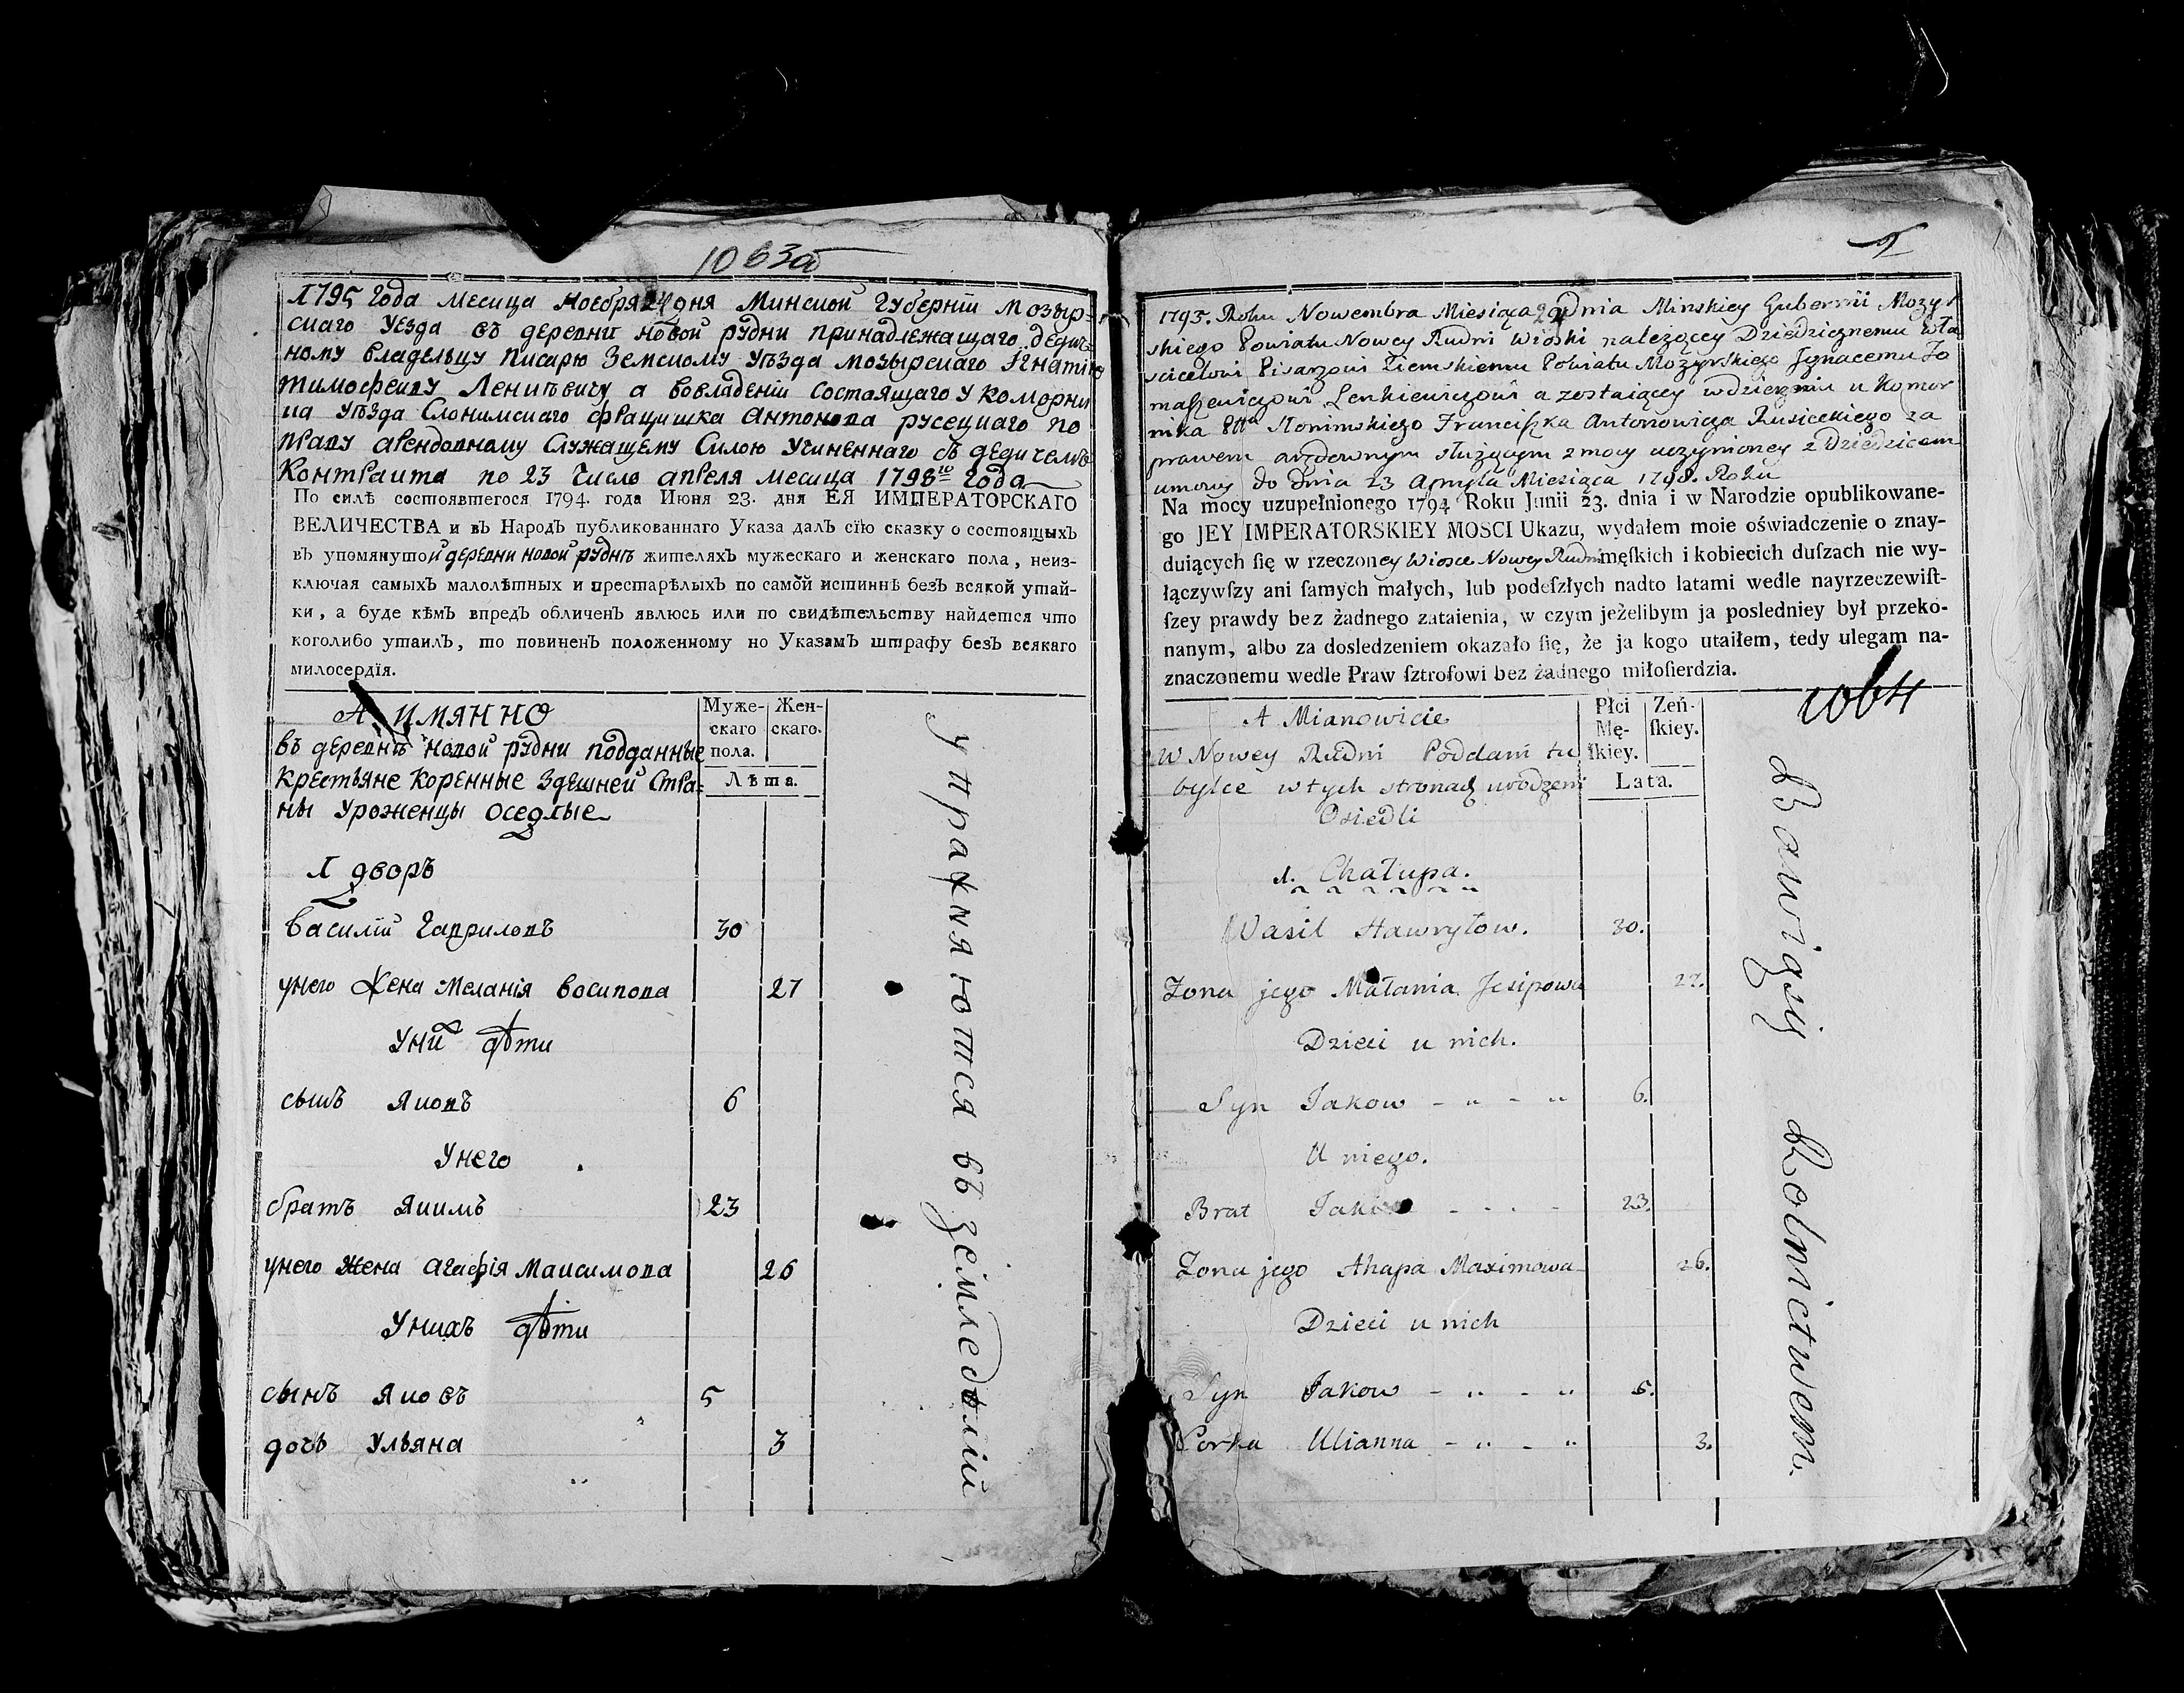 1063а
1795 года месица ноебря 24 дня Минской губернїи мозыр=
скаго уезда въ деревни новой рудни принадлежащаго дедич=
ному владельцу писарю земскому уѣзда мозырскаго Iгнатїю
тимофеиву Ленкевичу а вовладенїи состаящаго у коморни
ка уѣзда Слонимскаго францишка антонова русецкаго по
праву арендовному служащему силою учиненнаго съ дедичемъ
контракта по 23 число апреля месица 1798го года
По силѣ состоявшегося 1794. года Июня 23. дня ЕЯ ИМПЕРАТОРСКАГО
ВЕЛИЧЕСТВА и въ Народъ публикованнаго Указа далъ сїю сказку о состоящыхъ
въ упомянутой деревни новой руднѣ жителяхъ мужескаго и женскаго пола, неиз-
ключая самыхъ малолѣтных и престарѣлыхъ по самой истиннѣ безъ всякой утай-
ки, а буде кѣмъ впредъ обличенъ явлюсь или по свидѣтельству найдется что
коголибо утаилъ, то повиненъ положенному но Указамъ штрафу безъ всякаго
милосердїя.
А ИМЯННО
въ деревнѣ новой рудни подданные
крестьяне коренные здешней стра=
ны уроженцы оседлые
Муже-
скаго
пола.
Жен-
скаго.
Лѣта.
1 дворъ
василїй гавриловъ 30
унего жена меланїя восипова 27
уних дѣти
сынъ яковъ 6
унего
братъ якимъ 23
унего жена агафїя максимова 26
унихъ дѣти
сынъ яковъ 5
дочь ульяна 3
упражняются въ земледѣлїи
1795. Roku Nowembra Miesiąca 24 Dnia Minskiey Gubernii Mozyr
skiego Powiatu Nowey Rudni Wioski należącey Dziedzicznemu wła
scicelowi Pisarzowi Ziemskiemu Powiatu Mozyrskiego Jgnacemu To
maſzewiczowi Lenkiewiczowi a zostaiącey wdzierzeniu u Komor
nika Słonimskiego Franciſzka Antonowicza Rusieckiego za
prawem arędownym służącym z mocy uczynioney z Dziedzicem
umowy do dnia 23 Apryla Miesiąca 1798. Roku
Na mocy uzupełnionego 1794 Roku Junii 23. dnia i w Narodzie opublikowane-
go JEY IMPERATORSKIEY MOSCI Ukazu, wydałem moie oświadczenie o znay-
duiących ſię w rzeczoney Wiosce Nowey Rudni męſkich i kobiecich duſzach nie wy-
łączywſzy ani ſamych małych, lub podeſzłych nadto latami wedle nayrzeczewiſt-
ſzey prawdy bez żadnego zataienia, w czym jeżelibym ja posledniey był przeko-
nanym, albo za dosledzeniem okazało ſię, że ja kogo utaiłem, tedy ulegam na-
znaczonemu wedle Praw ſztrofowi bez żadnego miłoſierdzia.
1064
A Mianowicie
W Nowey Rudni Poddani tu
bylce wtych stronach urodzeni
Osiedli
Płci
Mę-
ſkiey.
Zeń-
ſkiey.
Lata.
1. Chałupa.
Wasil Hawryłow. 30.
Zona jego Małania Jesipowa 27.
Dzieci u nich.
Syn Jakow 6.
U niego.
Brat 23.
Zona jego Ahapa Maximowa 26.
Dzieci u nich
Syn Jakow 5.
Corka Ulianna 3.
Bawiąsię Rolnictwem.